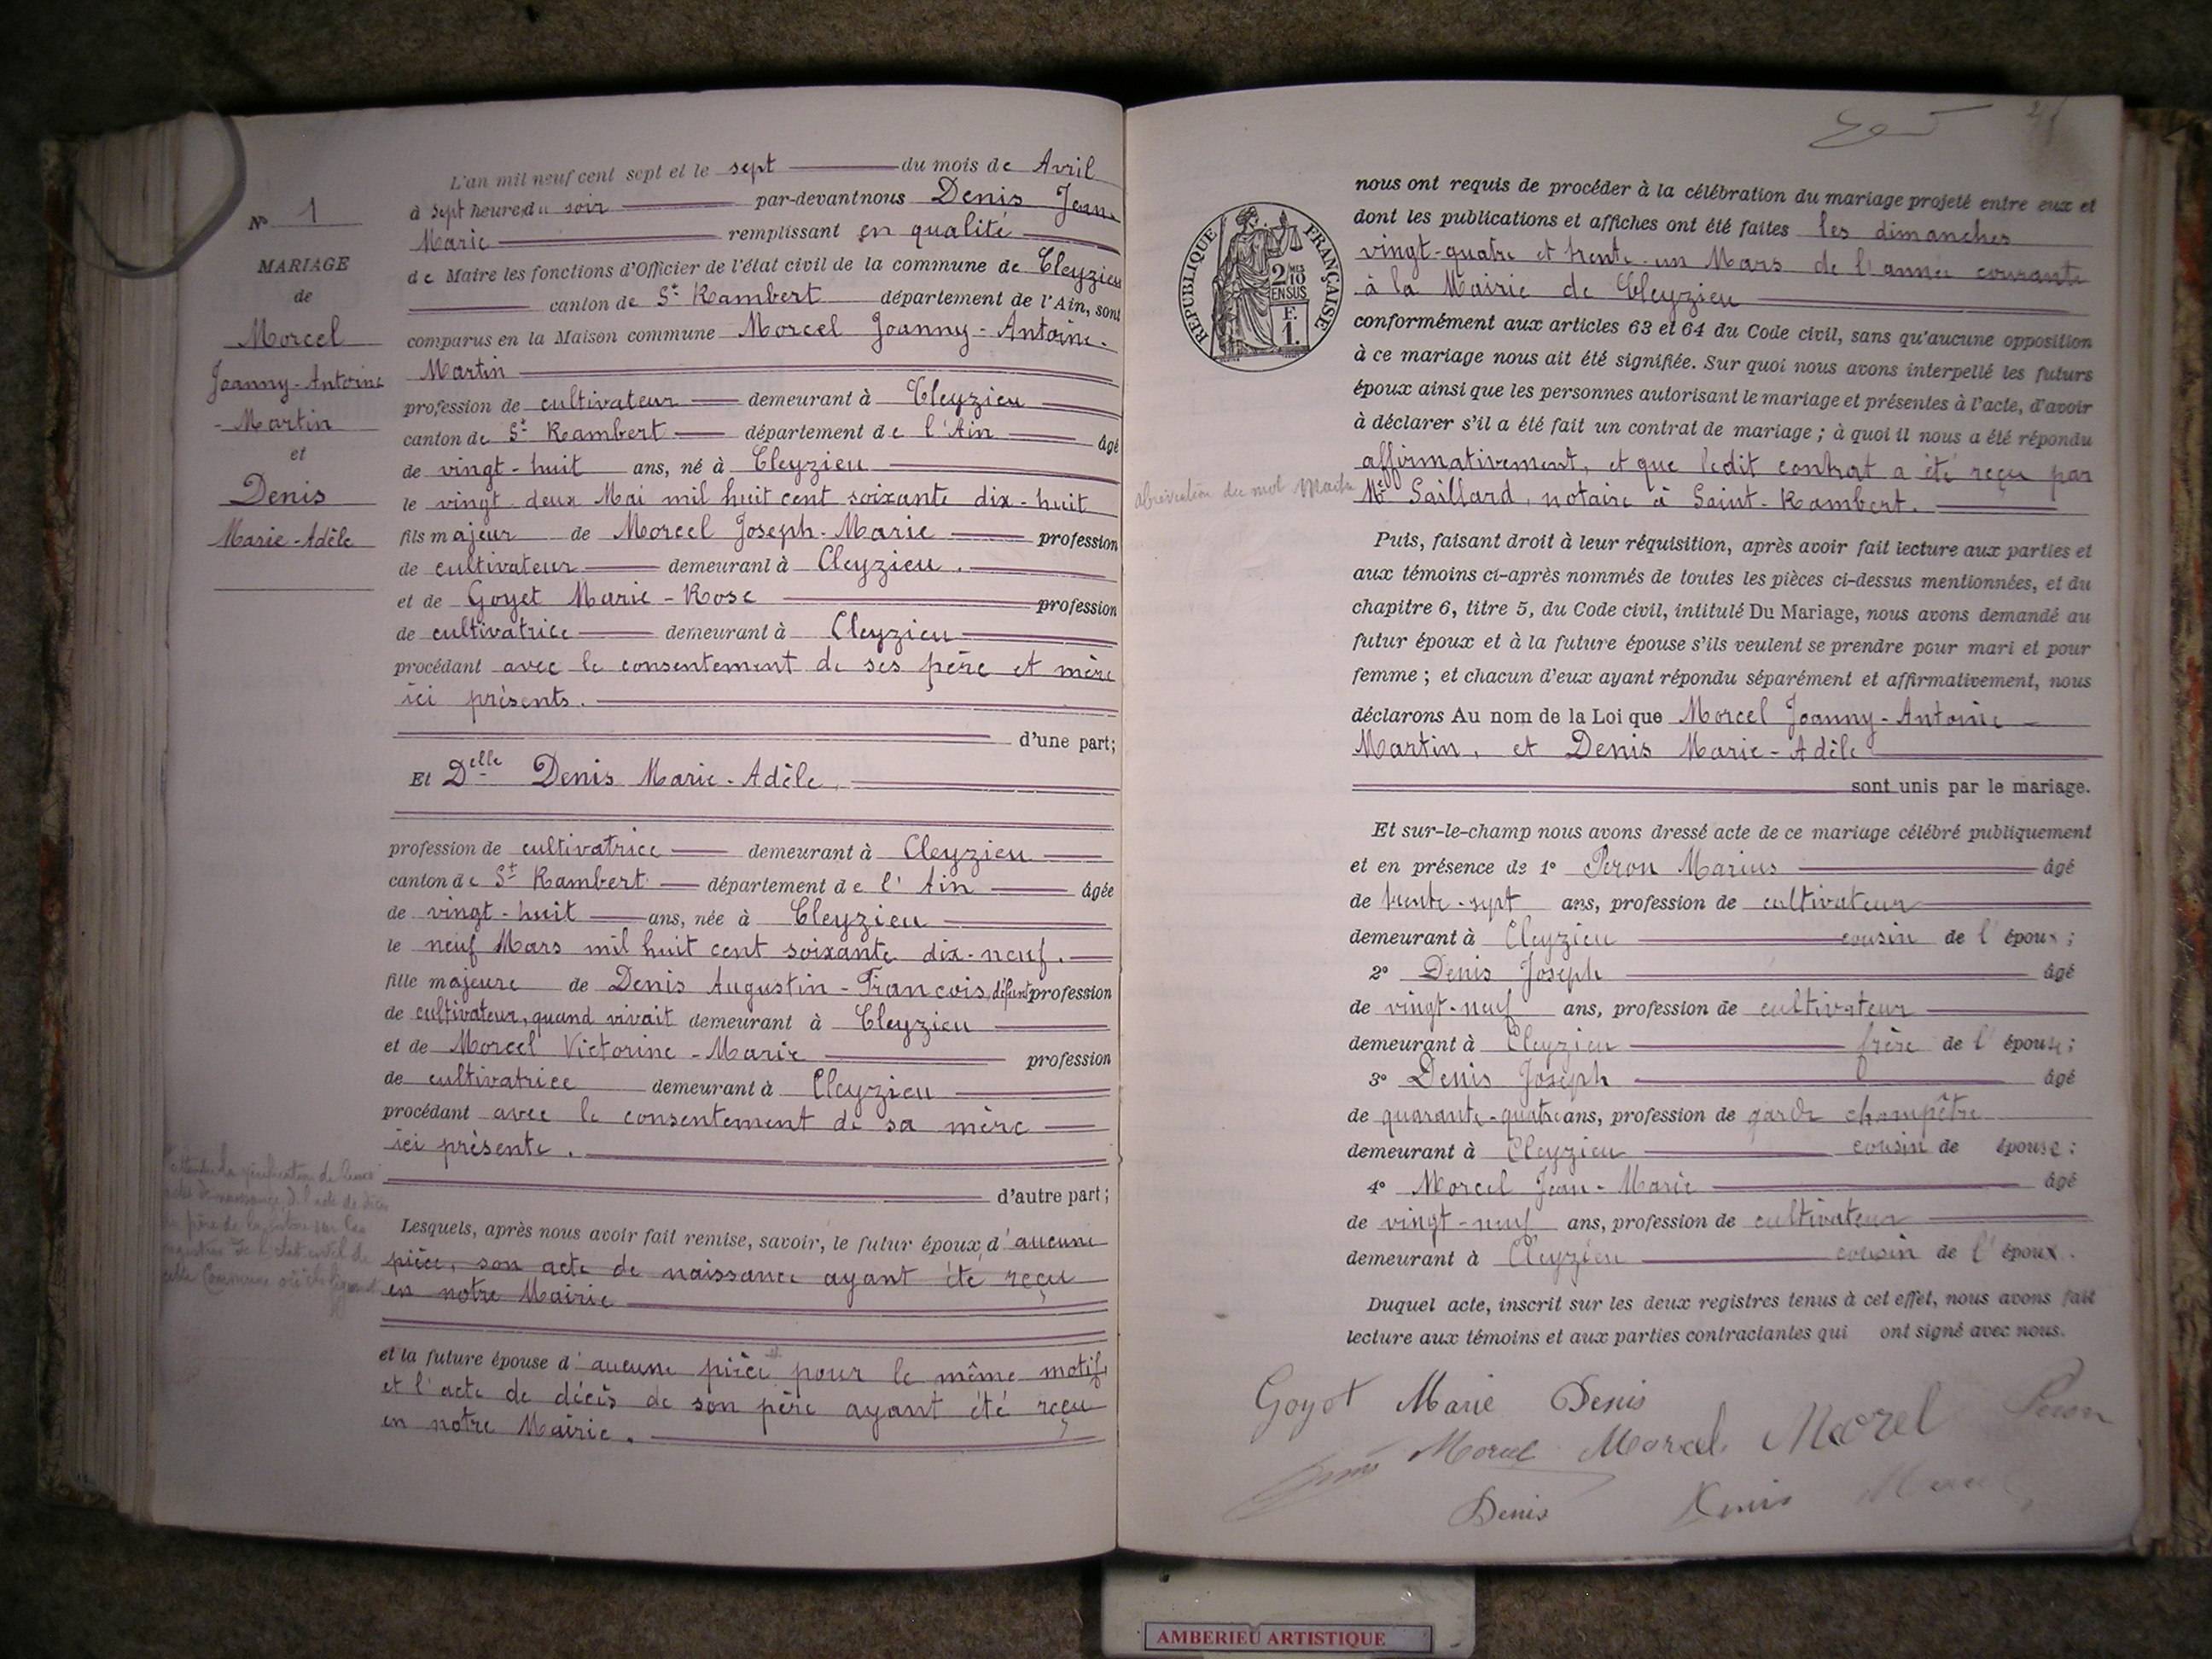 N° 1
MARIAGE
de
Morcel
Joanny-Antoine
- Martin
et
Denis
Marie-Adèle
L'an mil neuf cent sept et le sept du mois de Avril
à sept heures du soir par-devant nous Denis Jean
Marie remplissant en qualité
de Maire les fonctions d'Officier de l'état civil de la commune de Cleyzieu
canton de St Rambert département de l'Ain, sont
comparus en la Maison commune Morcel Joanny-Antoine-
Martin
profession de cultivateur demeurant à Cleyzieu
canton de St Rambert département de l'Ain âgé
de vingt-huit ans, né à Cleyzieu
le vingt-deux Mai mil huit cent soixante dix-huit
fils majeur de Morcel Joseph-Marie profession
de cultivateur demeurant à Cleyzieu.
et de Goyet Marie-Rose profession
de cultivatrice demeurant à Cleyzieu
procédant avec le consentement de ses père et mère
ici présents.
d'une part;
Et Delle Denis Marie-Adèle,
profession de cultivatrice demeurant à Cleyzieu
canton de St Rambert département de l'Ain âgée
de vingt-huit ans, née à Cleyzieu
le neuf Mars mil huit cent soixante dix-neuf.
fille majeure de Denis Augustin-François, défunt profession
de cultivateur, quand vivait demeurant à Cleyzieu
et de Morcel Victorine-Marie profession
de cultivatrice demeurant à Cleyzieu
procédant avec le consentement de sa mère
ici présente.
d'autre part;
Lesquels, après nous avoir fait remise, savoir, le futur époux, d'aucune
pièce, son acte de naissance ayant été reçu
en notre Mairie
et la future épouse d'aucune pièce pour le même motif
et l'acte de décès de son père ayant été reçu
en notre Mairie.
RÉPUBLIQUE FRANÇAISE
2/10MES
EN SUS
F.
1.
nous ont requis de procéder à la célébration du mariage projeté entre eux et
dont les publications et affiches ont été faites les dimanches
vingt-quatre et trente-un Mars de l'année courante
à la Mairie de Cleyzieu
conformément aux articles 63 et 64 du Code civil, sans qu'aucune opposition
à ce mariage nous ait été signifiée. Sur quoi nous avons interpellé les futurs
époux ainsi que les personnes autorisant le mariage et présentes à l'acte, d'avoir
à déclarer s'il a été fait un contrat de mariage; à quoi il nous a été répondu
affirmativement, et que ledit contrat a été reçu par
Me Gaillard, notaire à Saint-Rambert.
Puis, faisant droit à leur réquisition, après avoir fait lecture aux parties et
aux témoins ci-après nommés de toutes les pièces ci-dessus mentionnées, et du
chapitre 6, titre 5, du Code civil, intitulé Du Mariage, nous avons demandé au
futur époux et à la future épouse s'ils veulent se prendre pour mari et pour
femme; et chacun d'eux ayant répondu séparément et affirmativement, nous
déclarons Au nom de la Loi que Morcel Joanny-Antoine-
Martin, et Denis Marie-Adèle
sont unis par le mariage.
Et sur-le-champ nous avons dressé acte de ce mariage célébré publiquement
et en présence de 1° Peron Marius âgé
de trente-sept ans, profession de cultivateur
demeurant à Cleyzieu cousin de l'époux;
2° Denis Joseph âgé
de vingt-neuf ans, profession de cultivateur
demeurant à Cleyzieu frère de l'épouse;
3° Denis Joseph âgé
de quarante-quatre ans, profession de garde champêtre
demeurant à Cleyzieu cousin de épouse;
4° Morcel Jean-Marie âgé
de vingt-neuf ans, profession de cultivateur
demeurant à Cleyzieu cousin de l'époux.
Duquel acte, inscrit sur les deux registres tenus à cet effet, nous avons fait
lecture aux témoins et aux parties contractantes qui ont signé avec nous.
Goyot Marie Denis
Morcel Morcel Morel Peron
Denis Denis
AMBERIEU ARTISTIQUE